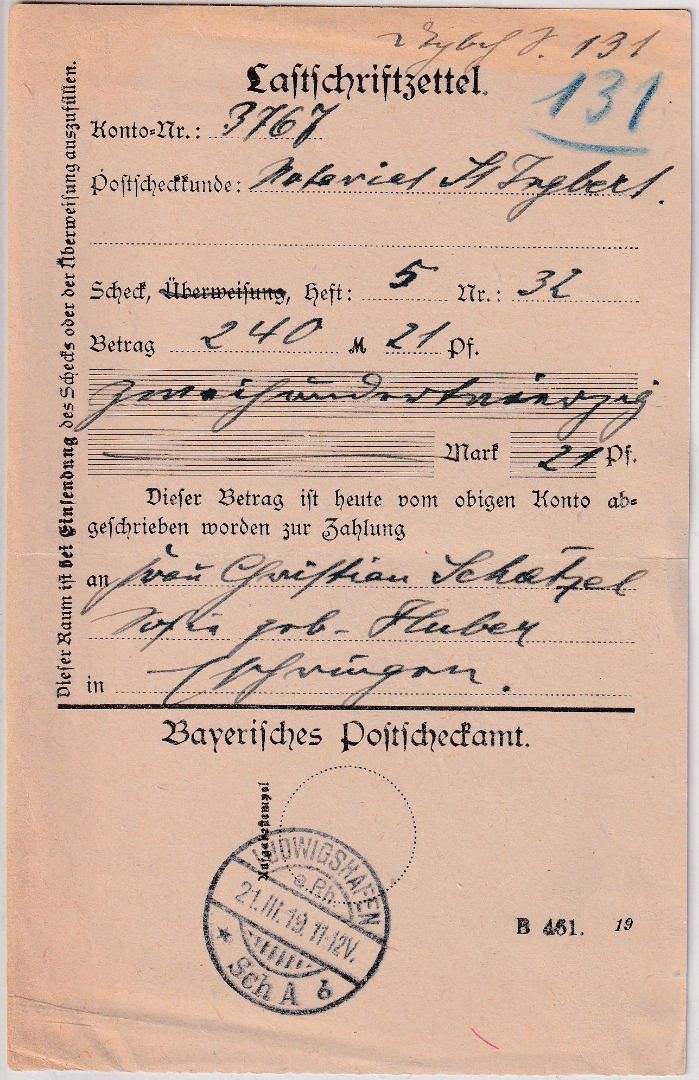 131
131
Lastschriftzettel.
Konto-Nr.: 3767
Postscheckkunde: Notariat St Ingbert.
Scheck, Überweisung, Heft: 5 Nr.: 32
Betrag 240 M 21 Pf.
zweihundertvierzig
Mark 21 Pf.
Dieser Betrag ist heute vom obigen Konto ab-
geschrieben worden zur Zahlung
an Frau Christian Schätzel
Sofie geb. Huber
in
Bayerisches Postscheckamt.
Aufgabestempel
LUDWIGSHAFEN
a.Rh.
21.III.19.11-12V.
* Sch A b
B 461. 19
Dieser Raum ist bei Einsendung des Schecks oder der Überweisung auszufüllen.